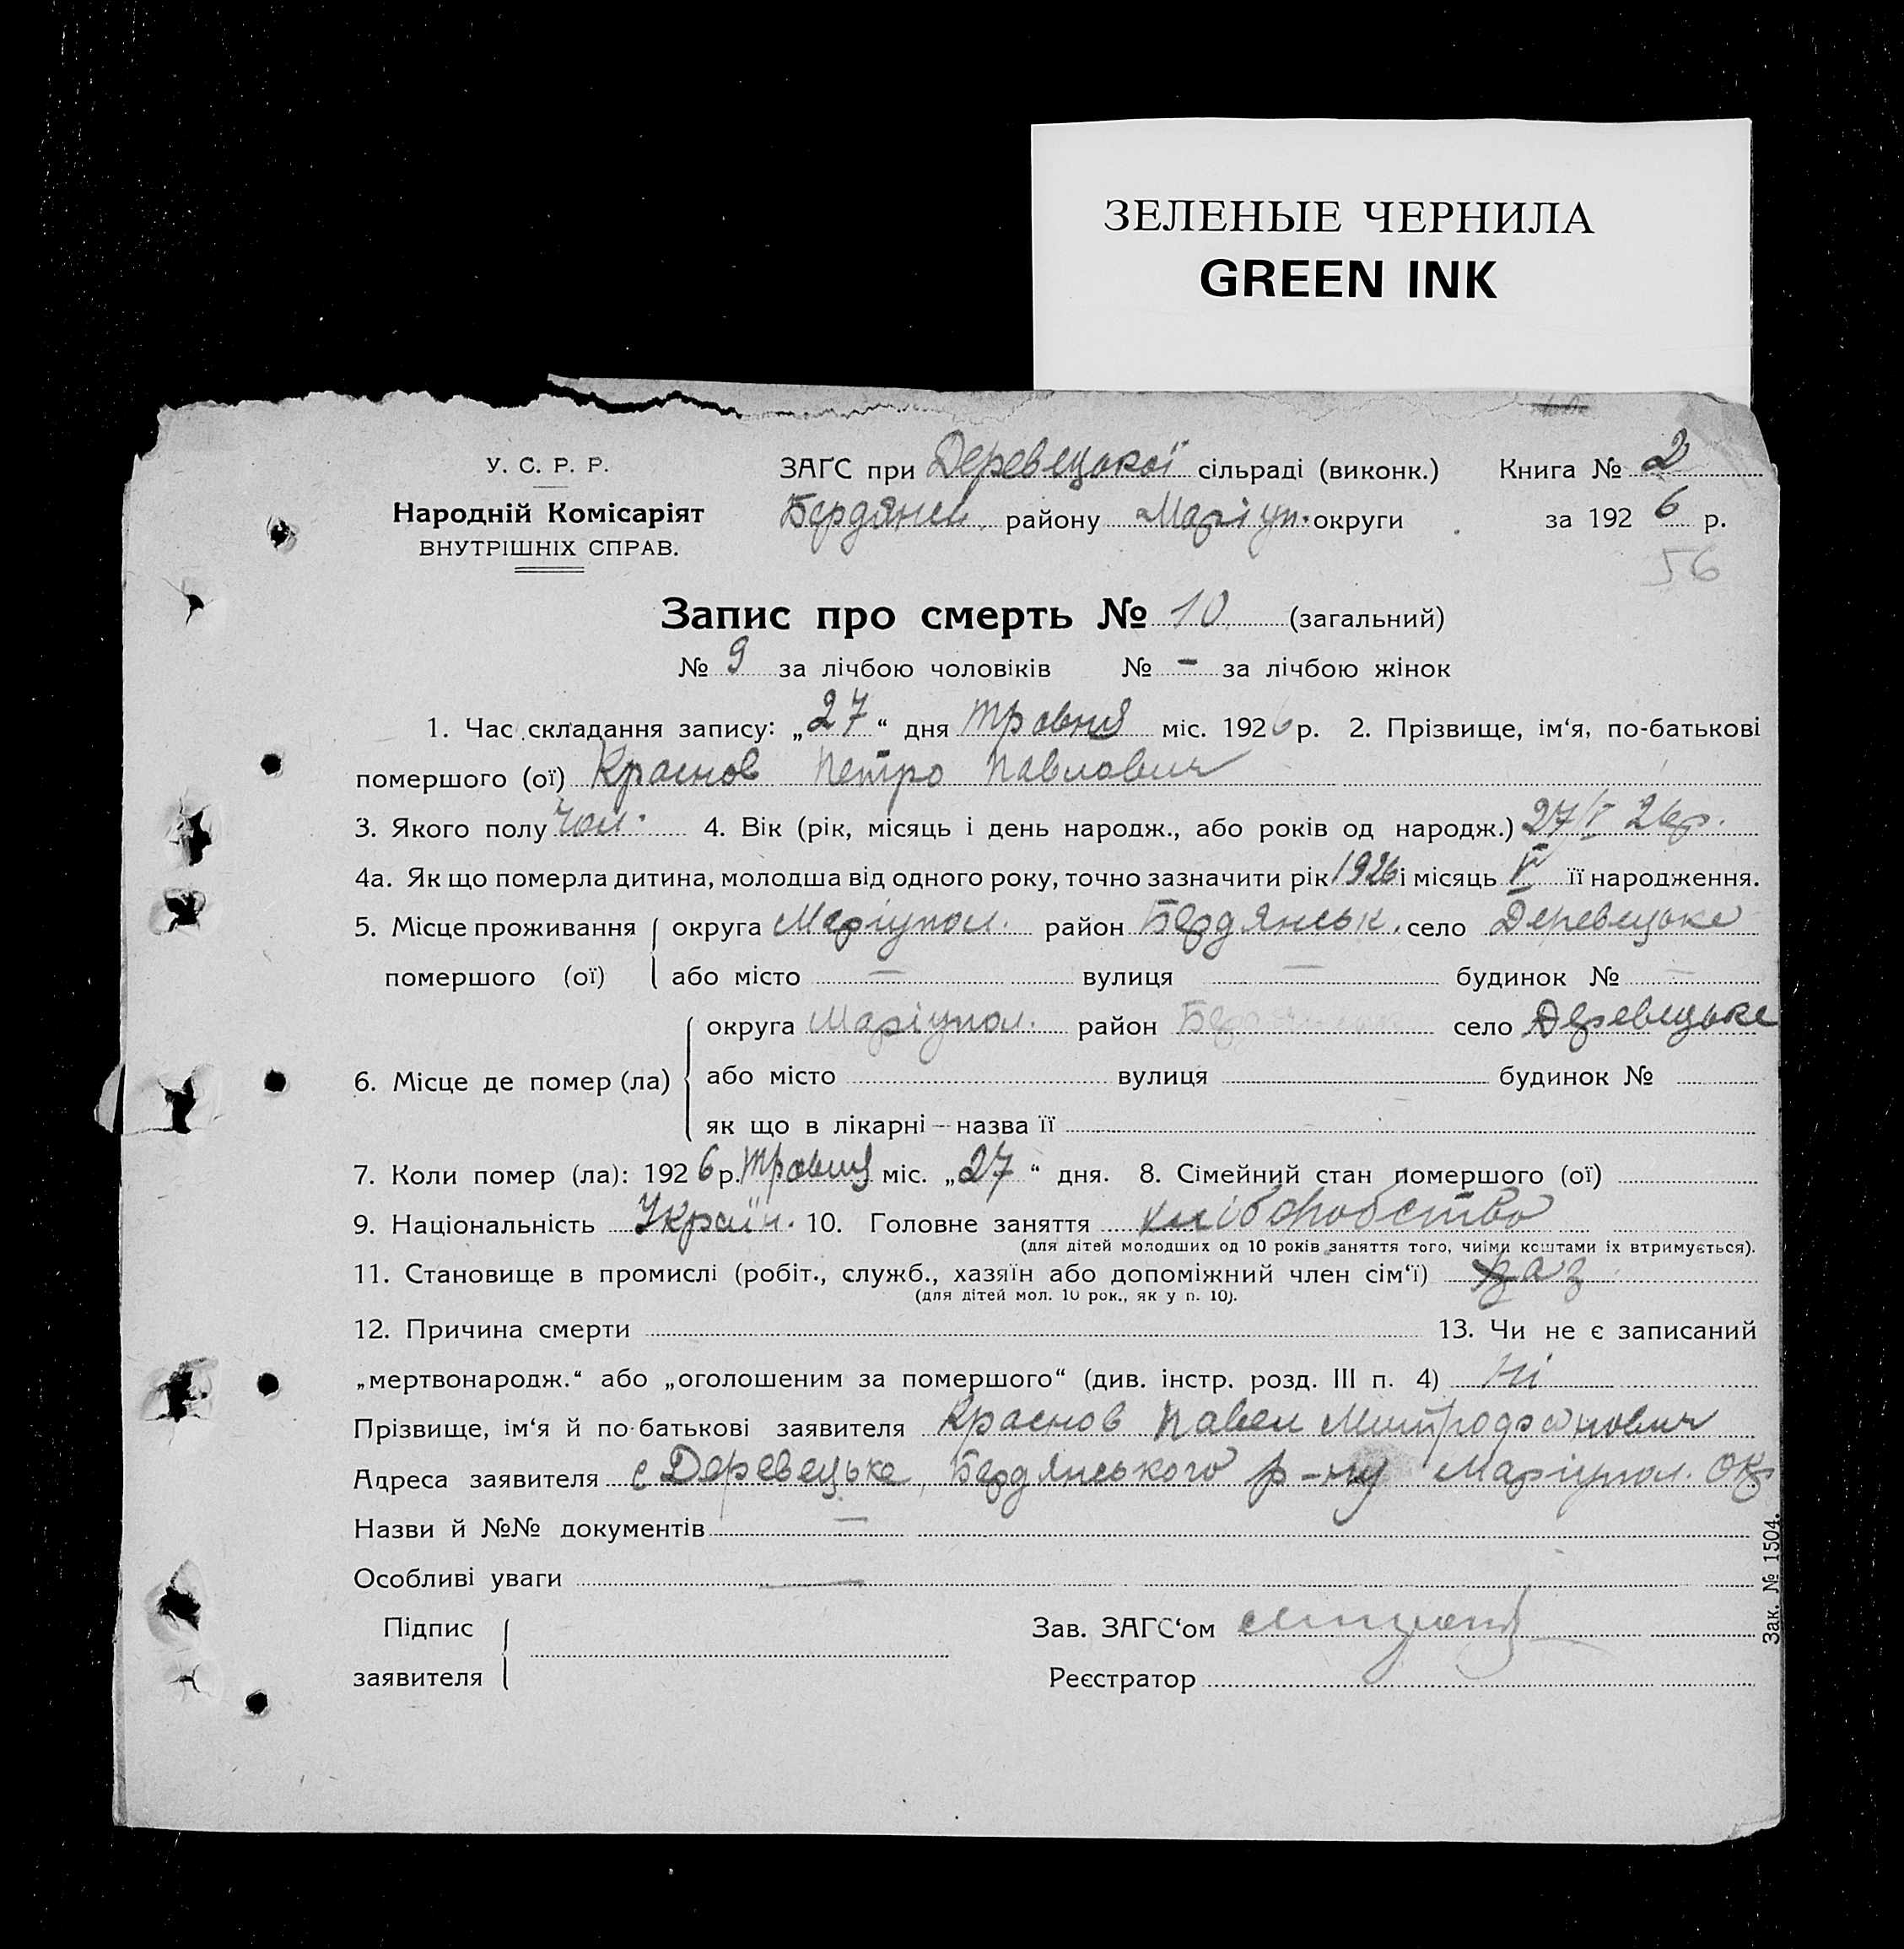 ЗЕЛЕНЫЕ ЧЕРНИЛА
GREEN INK
У. С. Р. Р.
ЗАГС при Деревецької сільраді (виконк.) Книга № 2
Народній Комісаріят
Бердянськ. району Маріуп. округи за 1926 р.
ВНУТРІШНІХ СПРАВ.
56
Запис про смерть № 10 (загальний)
№ 9 за лічбою чоловіків № – за лічбою жінок
1. Час складання запису: „27“ дня травня міс. 1926 р. 2. Прізвище, ім‘я, по-батькові
помершого (ої) Краснов Петро Павлович
3. Якого полу чол. 4. Вік (рік, місяць і день народж., або років од народж.) 27/V 26 р.
4а. Як що померла дитина, молодша від одного року, точно зазначити рік 1926 і місяць V її народження.
5. Місце проживання округа Маріупол. район Бердянськ. село Деревецьке
помершого (ої) або місто — вулиця — будинок № —
округа Маріупол. район Бердянськ село Деревецьке
6. Місце де помер (ла) або місто вулиця будинок №
як що в лікарні — назва її
7. Коли помер (ла): 1926 р. травня міс. „27“ дня. 8. Сімейний стан помершого (ої)
9. Національність Україн. 10. Головне заняття хліборобство
(для дітей молодших од 10 років заняття того, чиїми коштами їх втримується).
11. Становище в промислі (робіт., служб., хазяїн або допоміжний член сім‘ї) хаз
(для дітей мол. 10 рок., як у п. 10).
12. Причина смерти 13. Чи не є записаний
„мертвонародж.“ або „оголошеним за помершого“ (див. інстр. розд. III п. 4) Ні
Прізвище, ім‘я й по-батькові заявителя Краснов Павел Митрофанович
Адреса заявителя с Деревецьке, Бердянського р-ну Маріупол. Окр
Назви й №№ документів —
Особливі уваги —
Підпис Зав. ЗАГС‘ом
заявителя Реєстратор
Зак. № 1504.